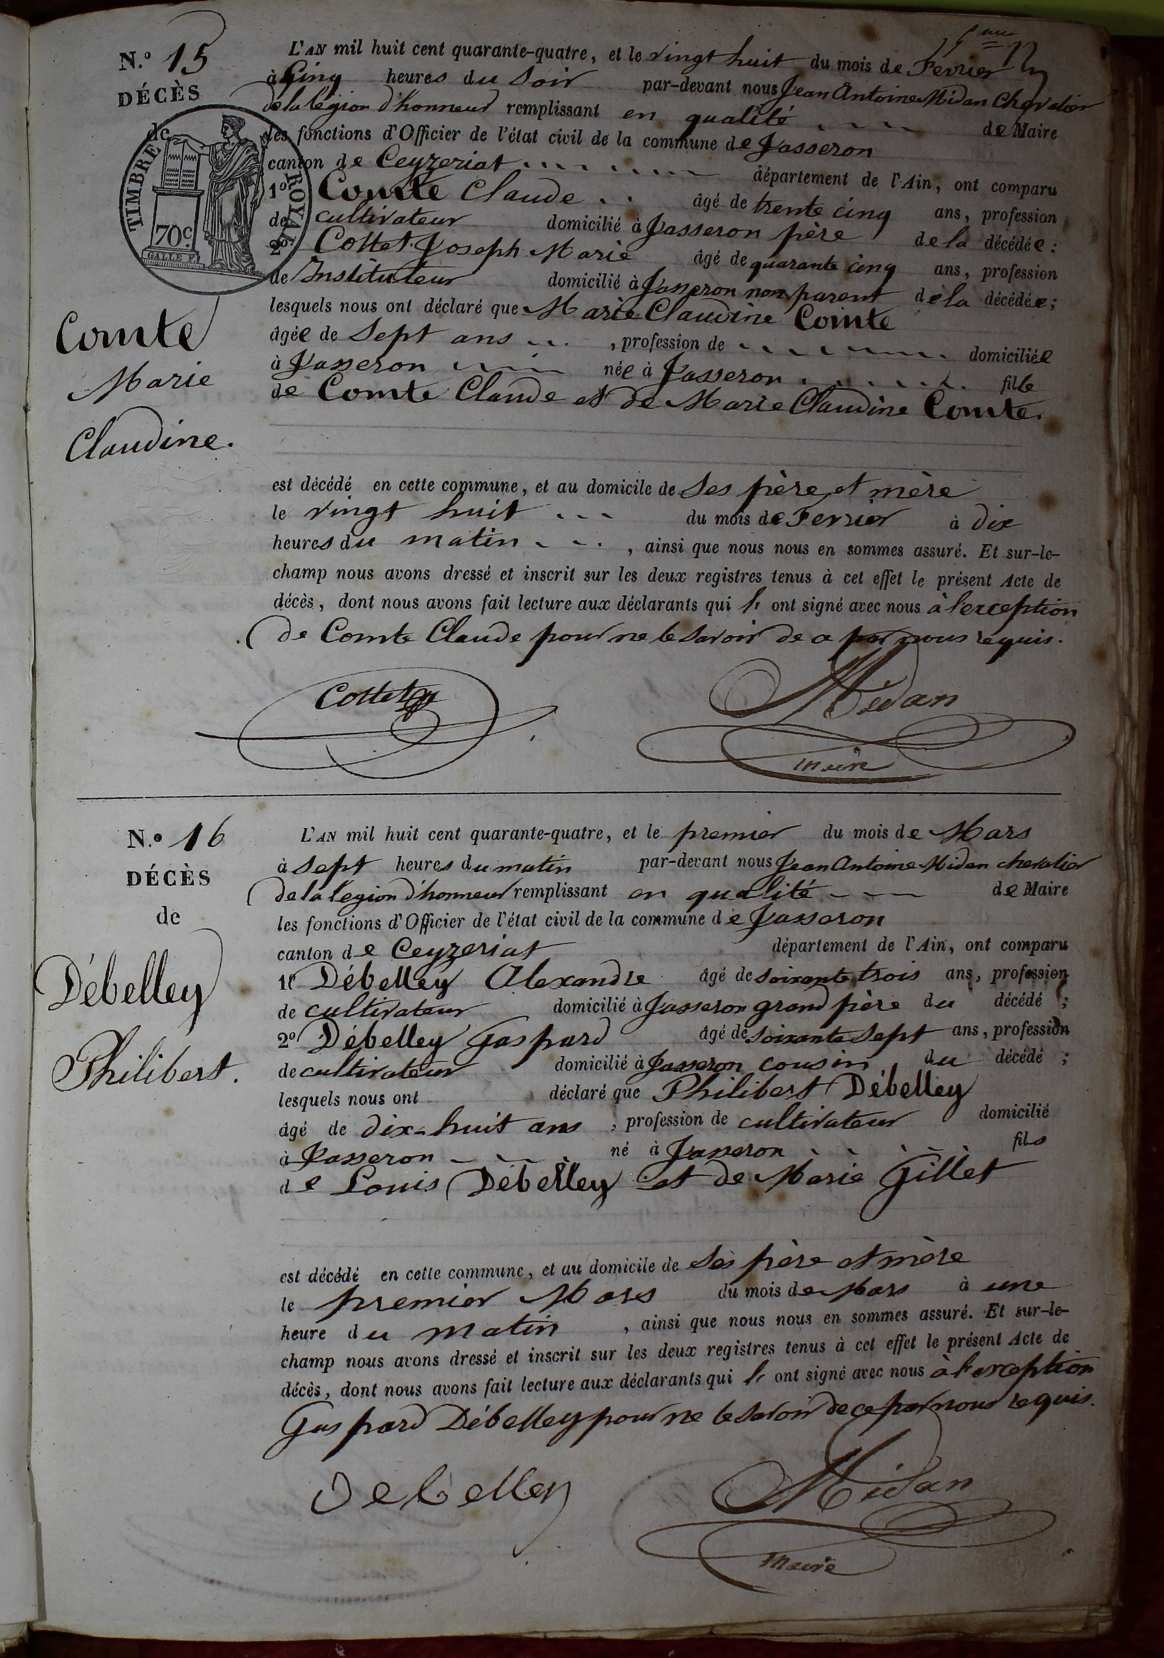 N.º 15
DÉCÈS
de
TIMBRE ROYAL
70c
Comte
Marie
Claudine.
L'AN mil huit cent quarante-quatre, et le vingt huit du mois de Fevrier
à Cinq heures du Soir par-devant nous Jean Antoine Midan Chevalier
de la légion d'honneur remplissant en qualité de Maire
les fonctions d'Officier de l'état civil de la commune de Jasseron
canton de Ceyzeriat département de l'Ain, ont comparu
1º Comte Claude âgé de trente cinq ans, profession
de cultivateur domicilié à Jasseron père de la décédée :
2º Cottet Joseph Marie âgé de quarante cinq ans, profession
de Instituteur domicilié à Jasseron non parent de la décédée ;
lesquels nous ont déclaré que Marie Claudine Comte
âgée de Sept ans , profession de domiciliée
à Jasseron née à Jasseron fille
de Comte Claude et de Marie Claudine Comte.
est décédé en cette commune, et au domicile de Ses père et mère
le vingt huit du mois de Fevrier à dix
heures du matin , ainsi que nous nous en sommes assuré. Et sur-le-
champ nous avons dressé et inscrit sur les deux registres tenus à cet effet le présent Acte de
décès, dont nous avons fait lecture aux déclarants qui l' ont signé avec nous à l'exception
de Comte Claude pour ne le savoir de ce par nous requis.
Cottet
Midan
maire
N.º 16
DÉCÈS
de
Débelley
Philibert.
L'AN mil huit cent quarante-quatre, et le premier du mois de Mars
à Sept heures du matin par-devant nous Jean Antoine Midan chevalier
de la légion d'honneur remplissant en qualité de Maire
les fonctions d'Officier de l'état civil de la commune de Jasseron
canton de Ceyzeriat département de l'Ain, ont comparu
1º Débelley Alexandre âgé de soixante trois ans, profession
de cultivateur domicilié à Jasseron grand père du décédé ;
2º Débelley Gaspard âgé de soixante Sept ans, profession
de cultivateur domicilié à Jasseron cousin du décédé ;
lesquels nous ont déclaré que Philibert Débelley
âgé de dix-huit ans , profession de cultivateur domicilié
à Jasseron né à Jasseron fils
de Louis Débelley et de Marie Gillet
est décédé en cette commune, et au domicile de Ses père et mère
le premier Mars du mois de Mars à une
heure du matin , ainsi que nous nous en sommes assuré. Et sur-le-
champ nous avons dressé et inscrit sur les deux registres tenus à cet effet le présent Acte de
décès, dont nous avons fait lecture aux déclarants qui l' ont signé avec nous à l'exception
Gaspard Débelley pour ne le savoir de ce par nous requis.
Debelley
Midan
maire